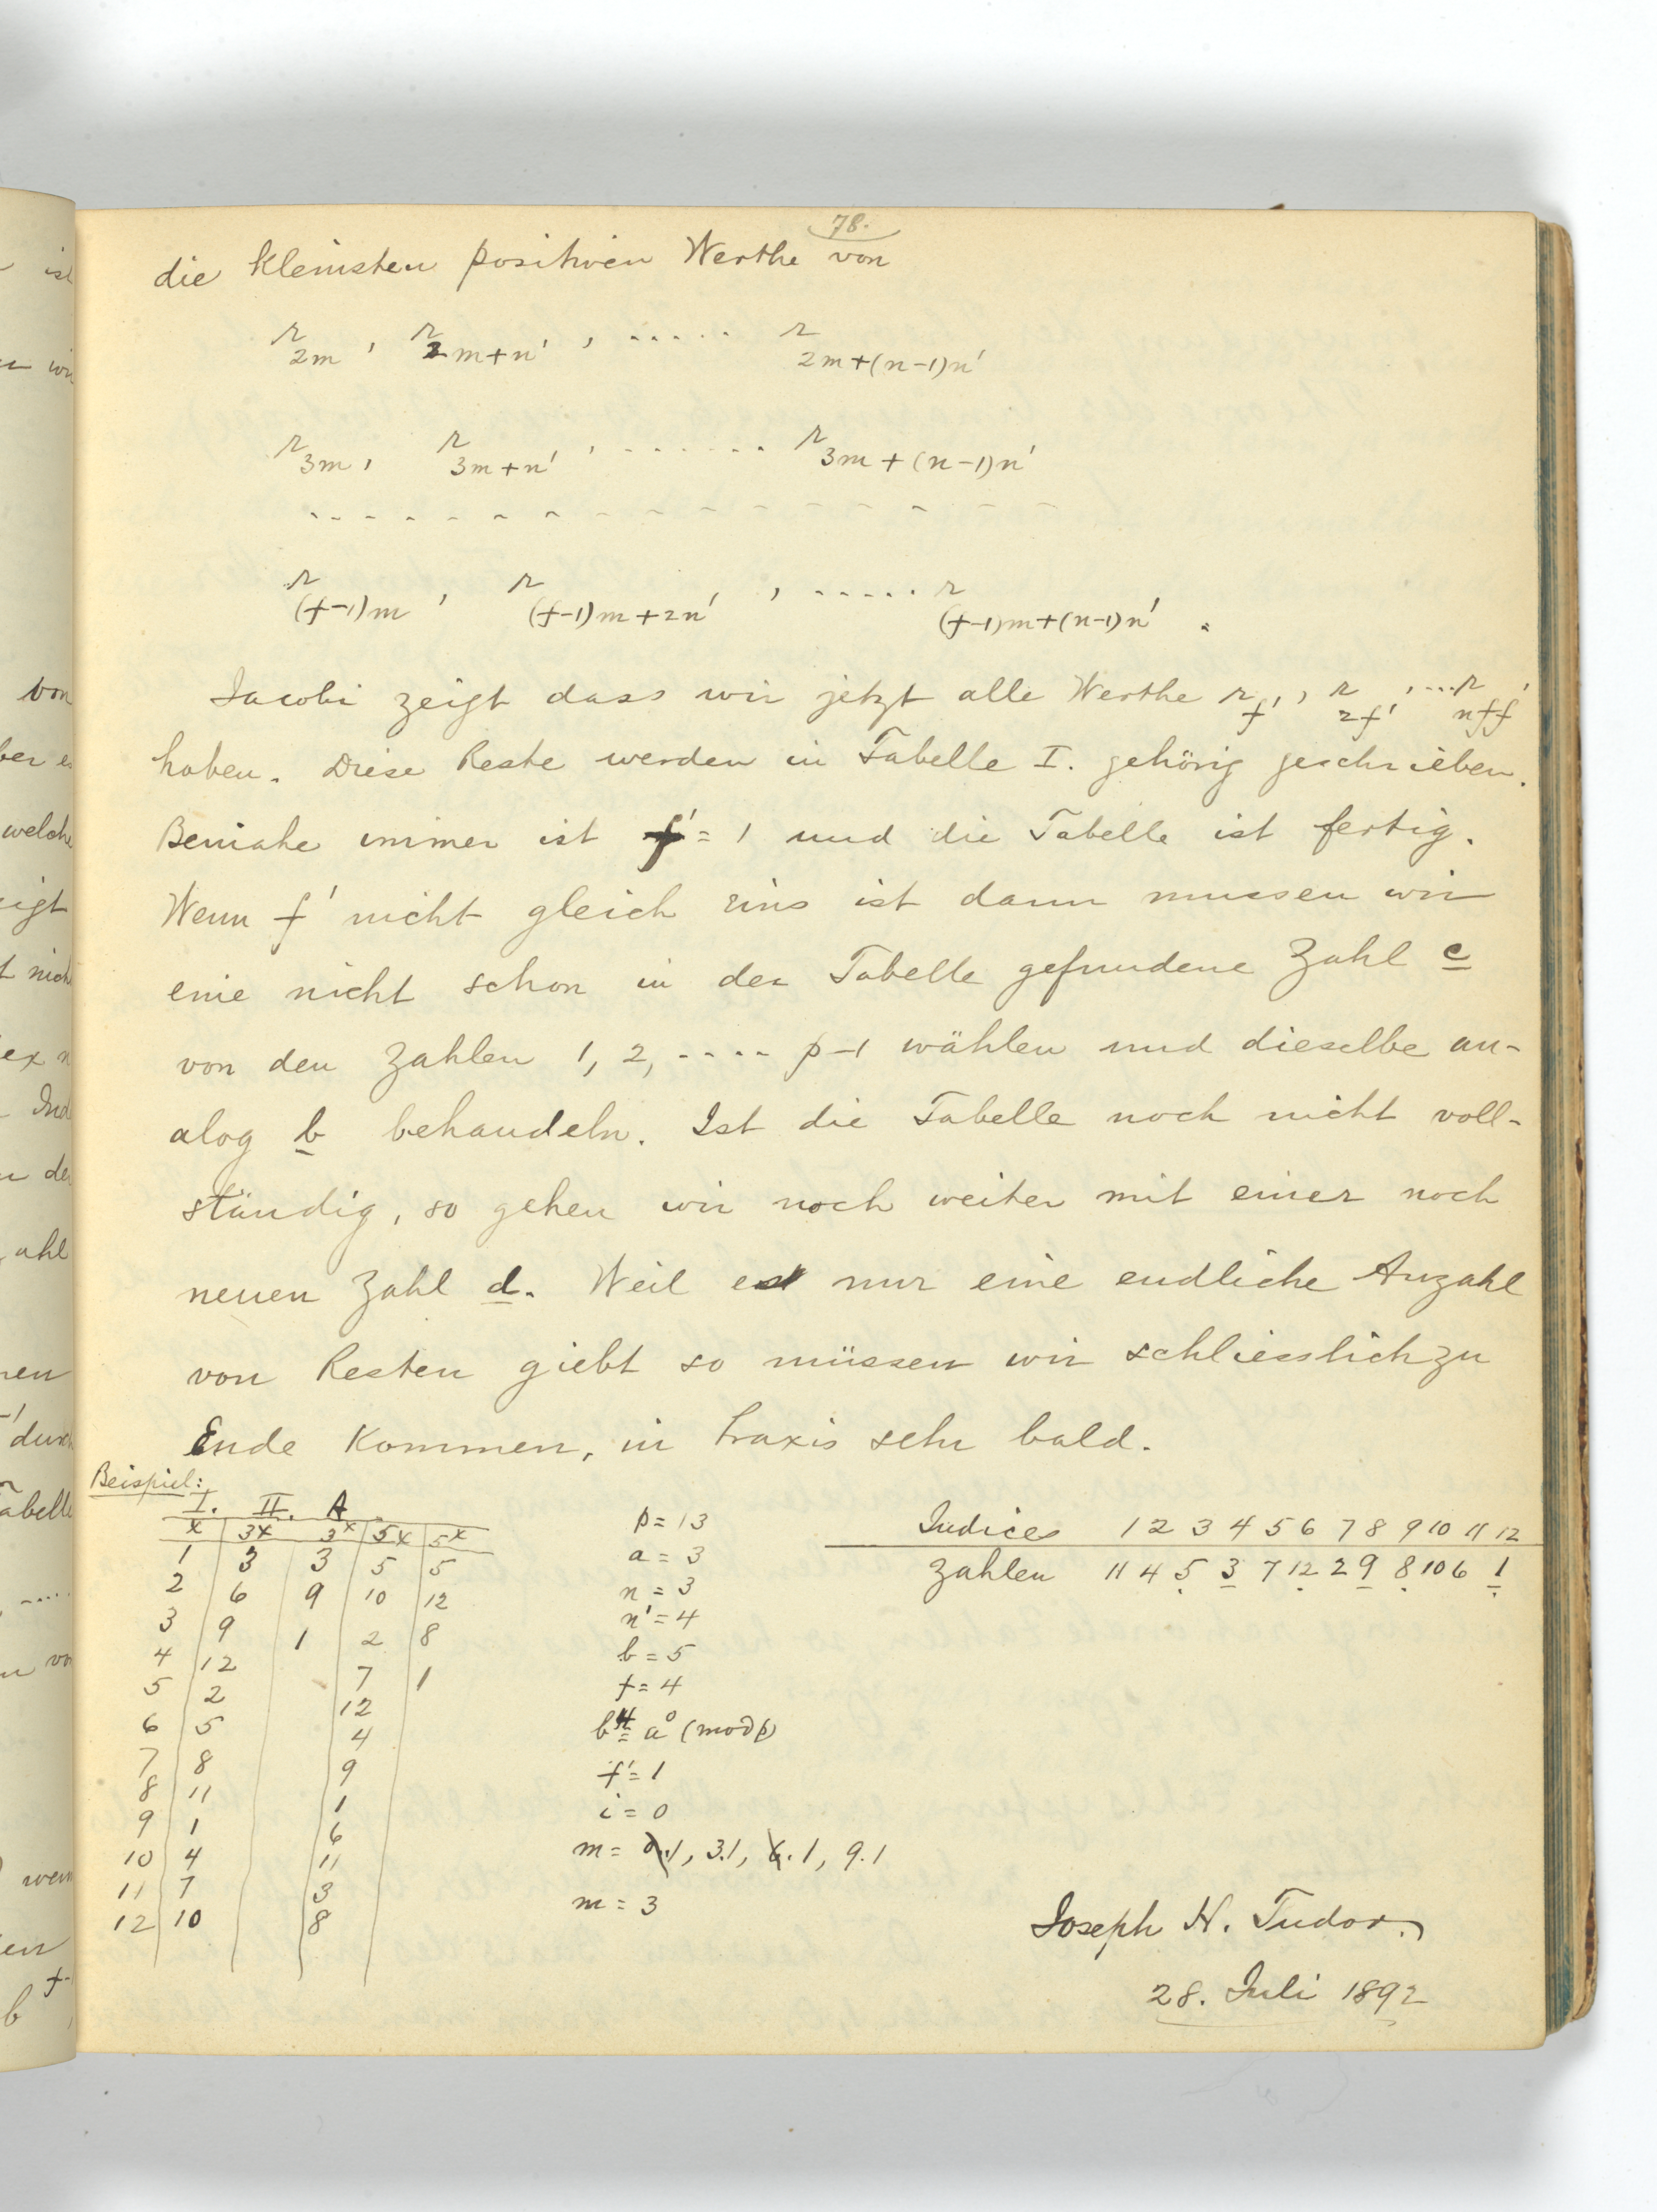 78.
die kleinsten positiven Werthe von
r_{2m}, r_{2m+n'}, ..... r_{2m+(n-1)n'}
r_{3m}, r_{3m+n'}, ....... r_{3m+(n-1)n'}
r_{(f-1)m}, r_{(f-1)m+2n'}, ..... r_{(f-1)m+(n-1)n'}.
Jacobi zeigt dass wir jetzt alle Werthe r_{f'}, r_{2f'}, ...r_{nff'}
haben. Diese Reste werden in Tabelle I. gehörig geschrieben.
Beinahe immer ist f' = 1 und die Tabelle ist fertig.
Wenn f' nicht gleich eins ist dann mussen wir
eine nicht schon in der Tabelle gefundene Zahl c
von den Zahlen 1, 2, .... p-1 wählen und dieselbe an-
alog b behandeln. Ist die Tabelle noch nicht voll-
ständig, so gehen wir noch weiter mit einer noch
neuen Zahl d. Weil es nur eine endliche Anzahl
von Resten giebt so müssen wir schliesslich zu
Ende kommen, in Praxis sehr bald.
Beispiel:
I. II. A
x 3x 3^x 5x 5^x
1 3 3 5 5
2 6 9 10 12
3 9 1 2 8
4 12 7 1
5 2 12
6 5 4
7 8 9
8 11 1
9 1 6
10 4 11
11 7 3
12 10 8
p = 13
a = 3
n = 3
n' = 4
b = 5
f = 4
b^4 ≡ a^0 (mod p)
f' = 1
i = 0
m = 0.1, 3.1, 6.1, 9.1
m = 3
Indices 1 2 3 4 5 6 7 8 9 10 11 12
Zahlen 11 4 5 3 7 12 2 9 8 10 6 1
Joseph H. Tudor.
28. Juli 1892